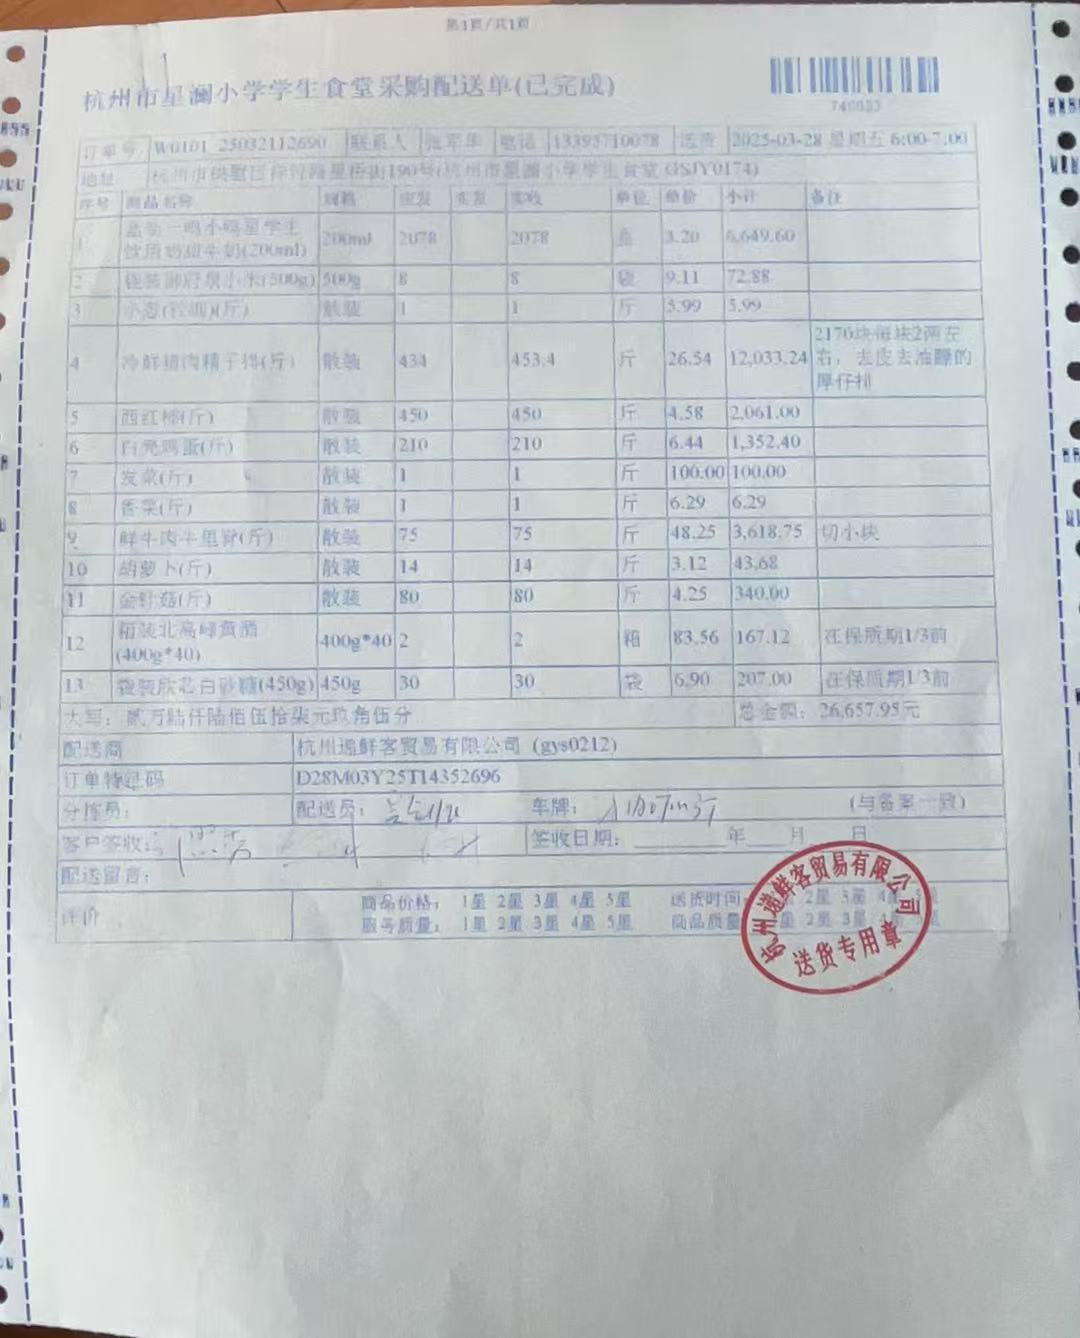 第1页/共1页
杭州市星澜小学学生食堂采购配送单(已完成)
740033
订单号 W0101_25032112690 联系人 张军华 电话 13395710078 送货 2025-03-28 星期五 6:00-7:00
地址 杭州市拱墅区 190号(杭州市星澜小学学生食堂 GSJY0174)
序号 商品名称 规格 应发 实发 实收 单位 单价 小计 备注
1 盒装一鸣小鸣星学生饮用奶甜牛奶(200ml) 200ml 2078 2078 盒 3.20 6,649.60
2 袋装御府泉小米(500g) 500g 8 8 袋 9.11 72.88
3 小葱 (斤) 散装 1 1 斤 5.99 5.99
4 冷鲜猪肉精子排(斤) 散装 434 453.4 斤 26.54 12,033.24 2170块每块2两左右，去皮去油膘的厚仔排
5 西红柿(斤) 散装 450 450 斤 4.58 2,061.00
6 白壳鸡蛋(斤) 散装 210 210 斤 6.44 1,352.40
7 发菜(斤) 散装 1 1 斤 100.00 100.00
8 香菜(斤) 散装 1 1 斤 6.29 6.29
9 鲜牛肉牛里脊(斤) 散装 75 75 斤 48.25 3,618.75 切小块
10 胡萝卜(斤) 散装 14 14 斤 3.12 43.68
11 金针菇(斤) 散装 80 80 斤 4.25 340.00
12 箱装北高峰黄酒(400g*40) 400g*40 2 2 箱 83.56 167.12 在保质期1/3前
13 袋装欣芯白砂糖(450g) 450g 30 30 袋 6.90 207.00 在保质期1/3前
大写：贰万陆仟陆佰伍拾柒元玖角伍分 总金额：26,657.95元
配送商 杭州递鲜客贸易有限公司 (gys0212)
订单特征码 D28M03Y25T14352696
分拣员： 配送员： 车牌： (与备案一致)
客户签收： 签收日期： 年 月 日
配送留言：
评价 商品价格： 1星 2星 3星 4星 5星 送货时间 2星 3星 4星
服务质量： 1星 2星 3星 4星 5星 商品质量 2星 3星
杭州递鲜客贸易有限公司
送货专用章